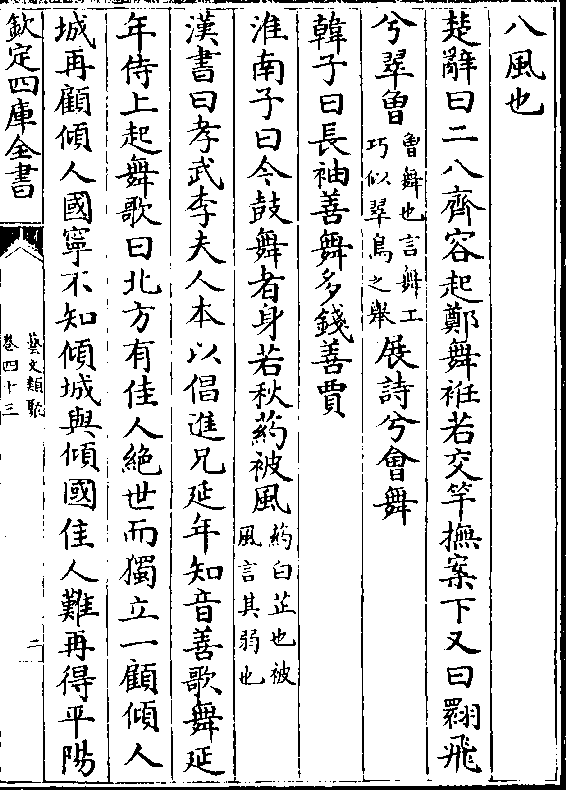 八風也
楚辭曰二八齊容起鄭舞袵若交竿撫案下又曰翾飛
兮翠曾曾舞也言舞工巧似翠鳥之舉展詩兮會舞
韓子曰長袖善舞多錢善賈
淮南子曰今鼓舞者身若秋葯被風葯白芷也被風言其弱也
漢書曰孝武李夫人本以倡進兄延年知音善歌舞延
年侍上起舞歌曰北方有佳人絶世而獨立一顧傾人
城再顧傾人國寧不知傾城與傾國佳人難再得平陽
欽定四庫全書
藝文類聚
卷四十三
二